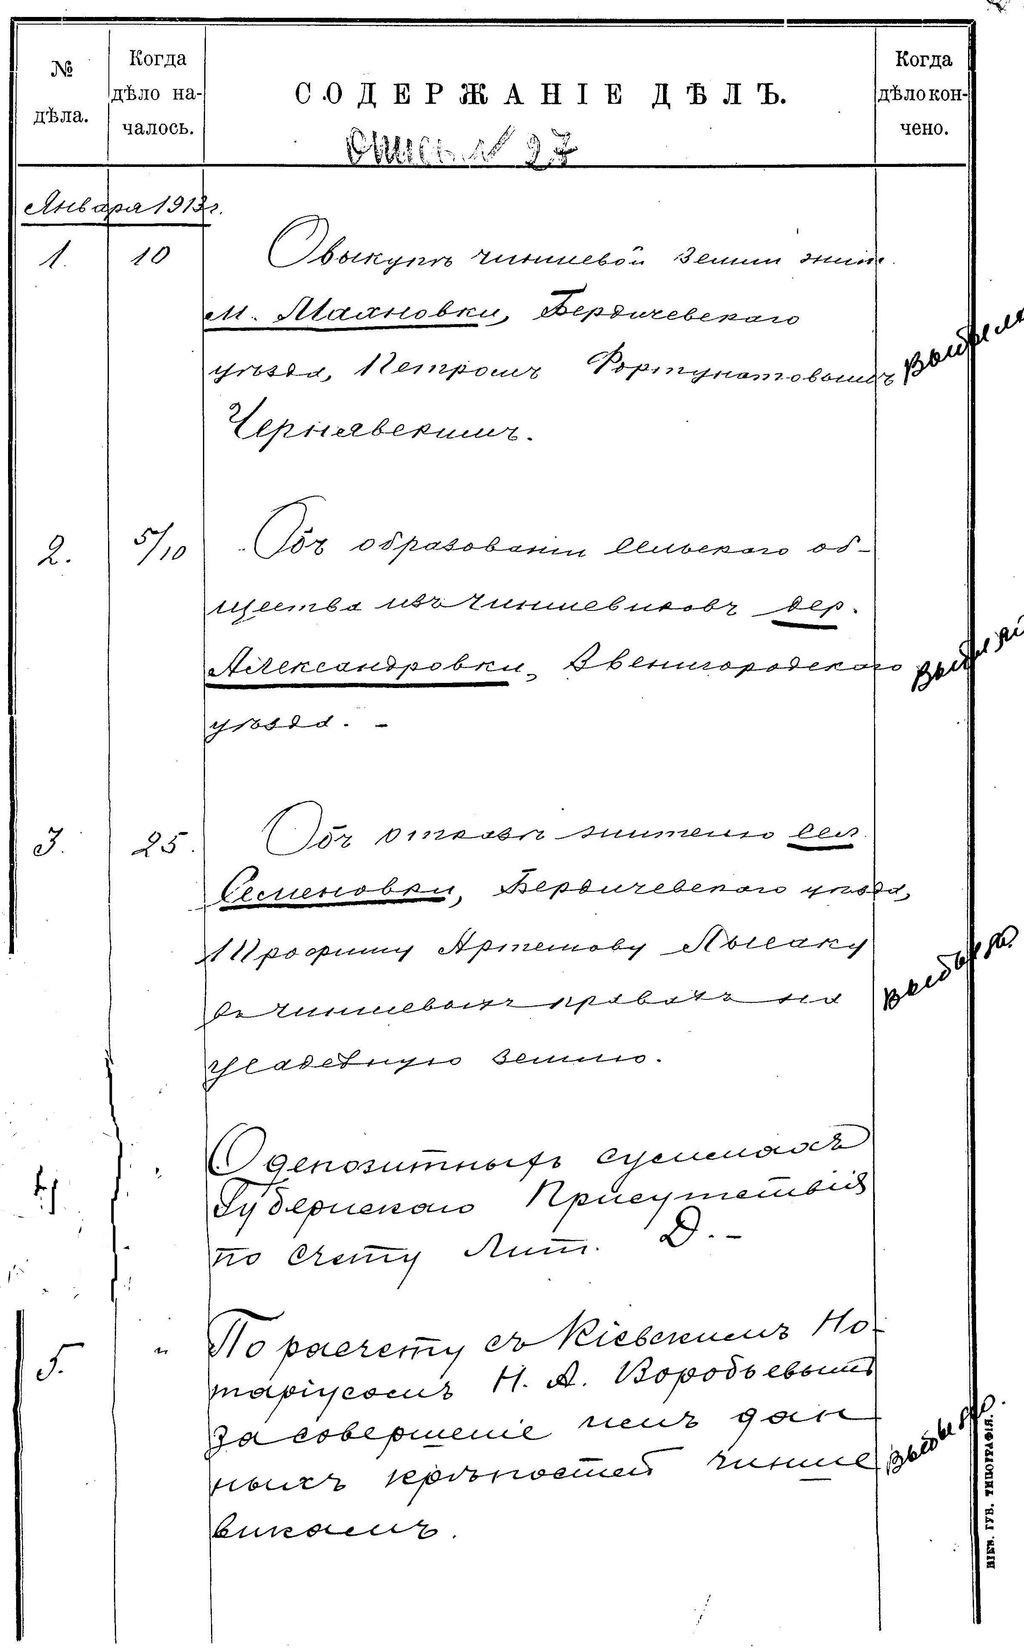 № дѣла.
Когда дѣло на-чалось.
СОДЕРЖАНІЕ ДѢЛЪ.
Когда дѣло кон-чено.
Опись № 27
Января 1913 г.
1. 10 О выкупѣ чиншевой земли жит.
м. Махновки, Бердичевскаго
уѣзда, Петромъ Фортунатовымъ
Чернявскимъ.
2. 5/10 Объ образованіи сельскаго об-
щества изъ чиншевиковъ дер.
Александровки, Звенигородскаго
уѣзда. –
3. 25. Объ отказѣ жителю сел.
Семеновки, Бердичевскаго уѣзда,
Трофиму Артемову Лысаку
въ чиншевыхъ правахъ на
усадебную землю.
4 " О депозитныхъ суммахъ
Губернскаго Присутствія
по счету Лит. Д. –
5. " По расчету съ Кіевскимъ Но-
таріусомъ Н. А. Воробьевымъ
за совершеніе имъ дан
ныхъ крѣпостей чинше
викамъ.
Выбыло
Выбыло
КІЕВ. ГУБ. ТИПОГРАФІЯ.